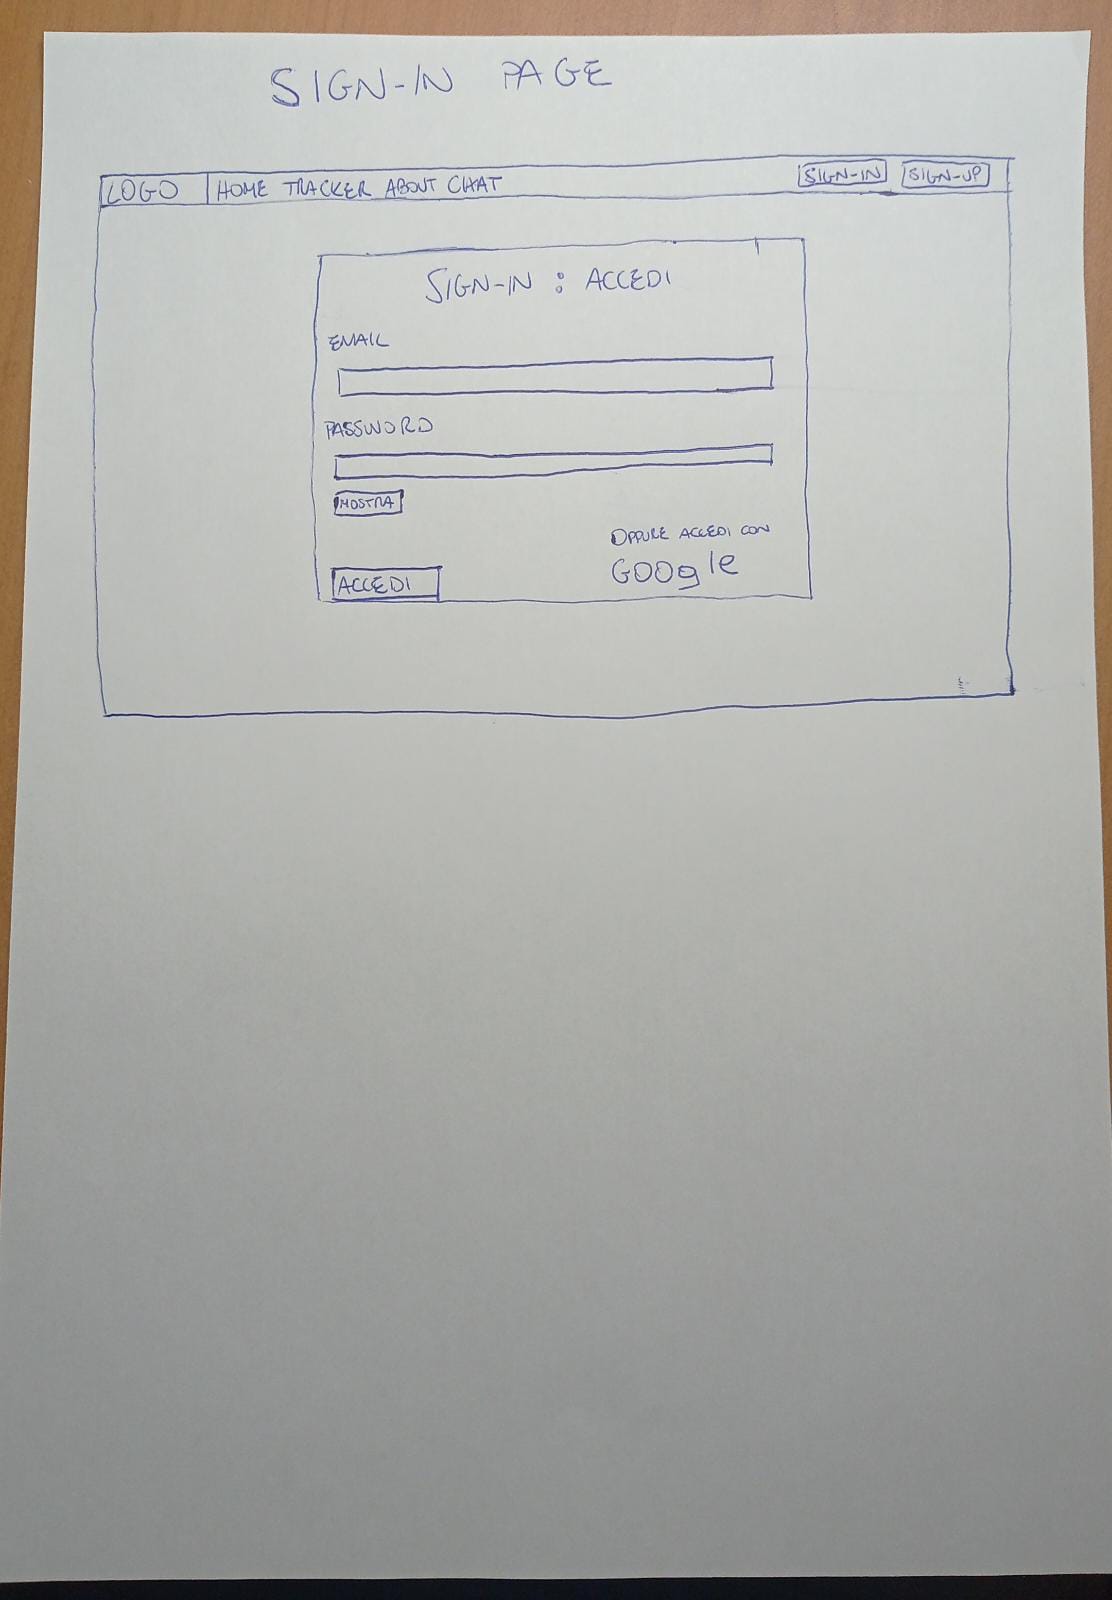 SIGN-IN PAGE
LOGO HOME TRACKER ABOUT CHAT SIGN-IN SIGN-UP
SIGN-IN : ACCEDI
EMAIL
PASSWORD
MOSTRA
OPPURE ACCEDI CON
GOOgle
ACCEDI